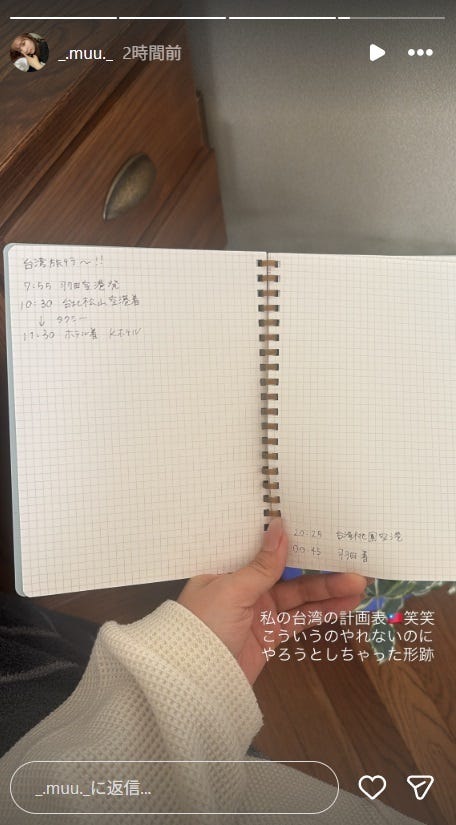 _.muu._ 2時間前
台湾旅行〜!!
7:55 羽田空港発
10:30 台北松山空港着
↓ タクシー
11:30 ホテル着 Kホテル
20:25 台湾桃園空港
00:45 羽田着
私の台湾の計画表🇹🇼笑笑
こういうのやれないのに
やろうとしちゃった形跡
_.muu._に返信...